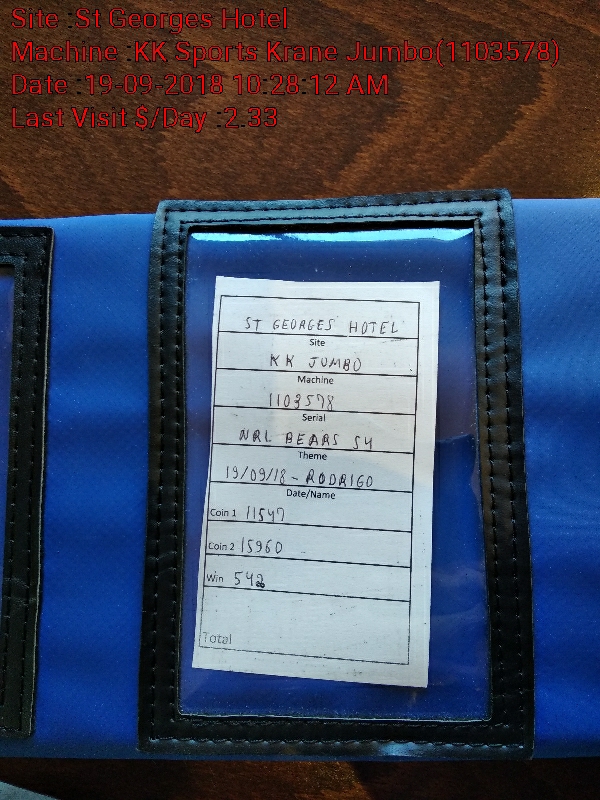 Site :St Georges Hotel
Machine :KK Sports Krane Jumbo(1103578)
Date :19-09-2018 10:28:12 AM
Last Visit $/Day :2.33
ST GEORGES HOTEL
Site
KK JUMBO
Machine
1103578
Serial
NRL BEARS S4
Theme
19/09/18 - RODRIGO
Date/Name
Coin 1 11547
Coin 2 15960
Win 542
Total